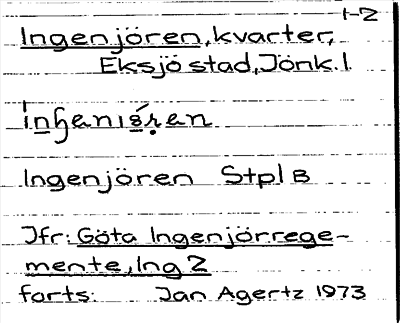 1-2
Ingenjören, kvarter,
Eksjö stad, Jönk. l.
Ingenjören Stpl B
Jfr: Göta Ingenjörrege-
mente, Ing 2
forts: Jan Agertz 1973